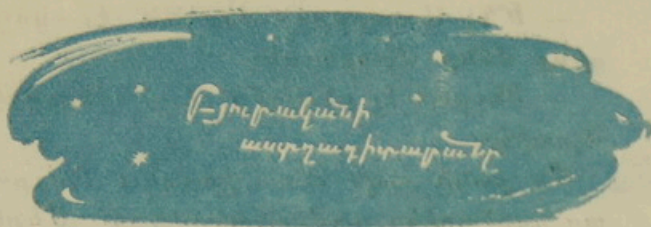 Բյուրականի
աստղադիտարանը